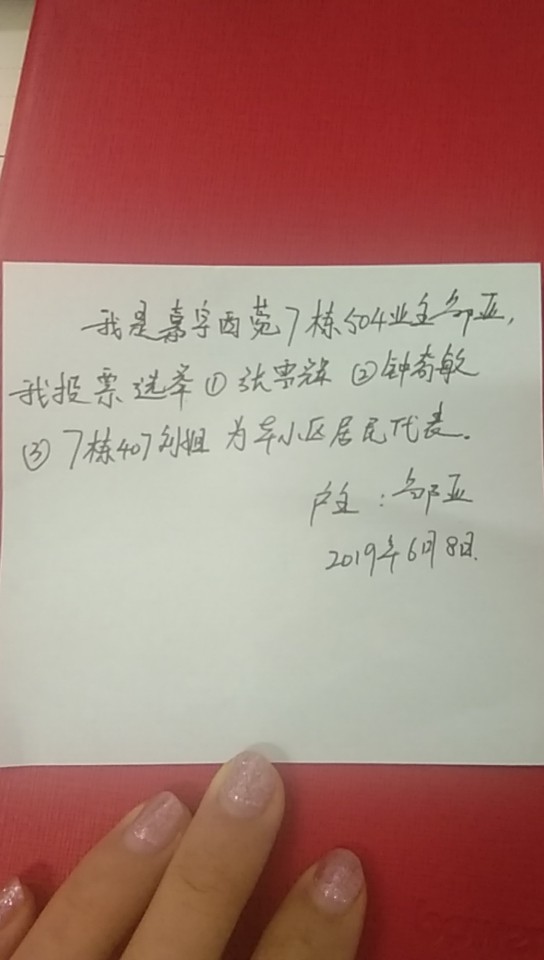 我是嘉宇西苑7栋504业主邹亚,
我投票选举①张雪锦②钟奇敏
③7栋407刘姐为本小区居民代表。
户主:邹亚
2019年6月8日.